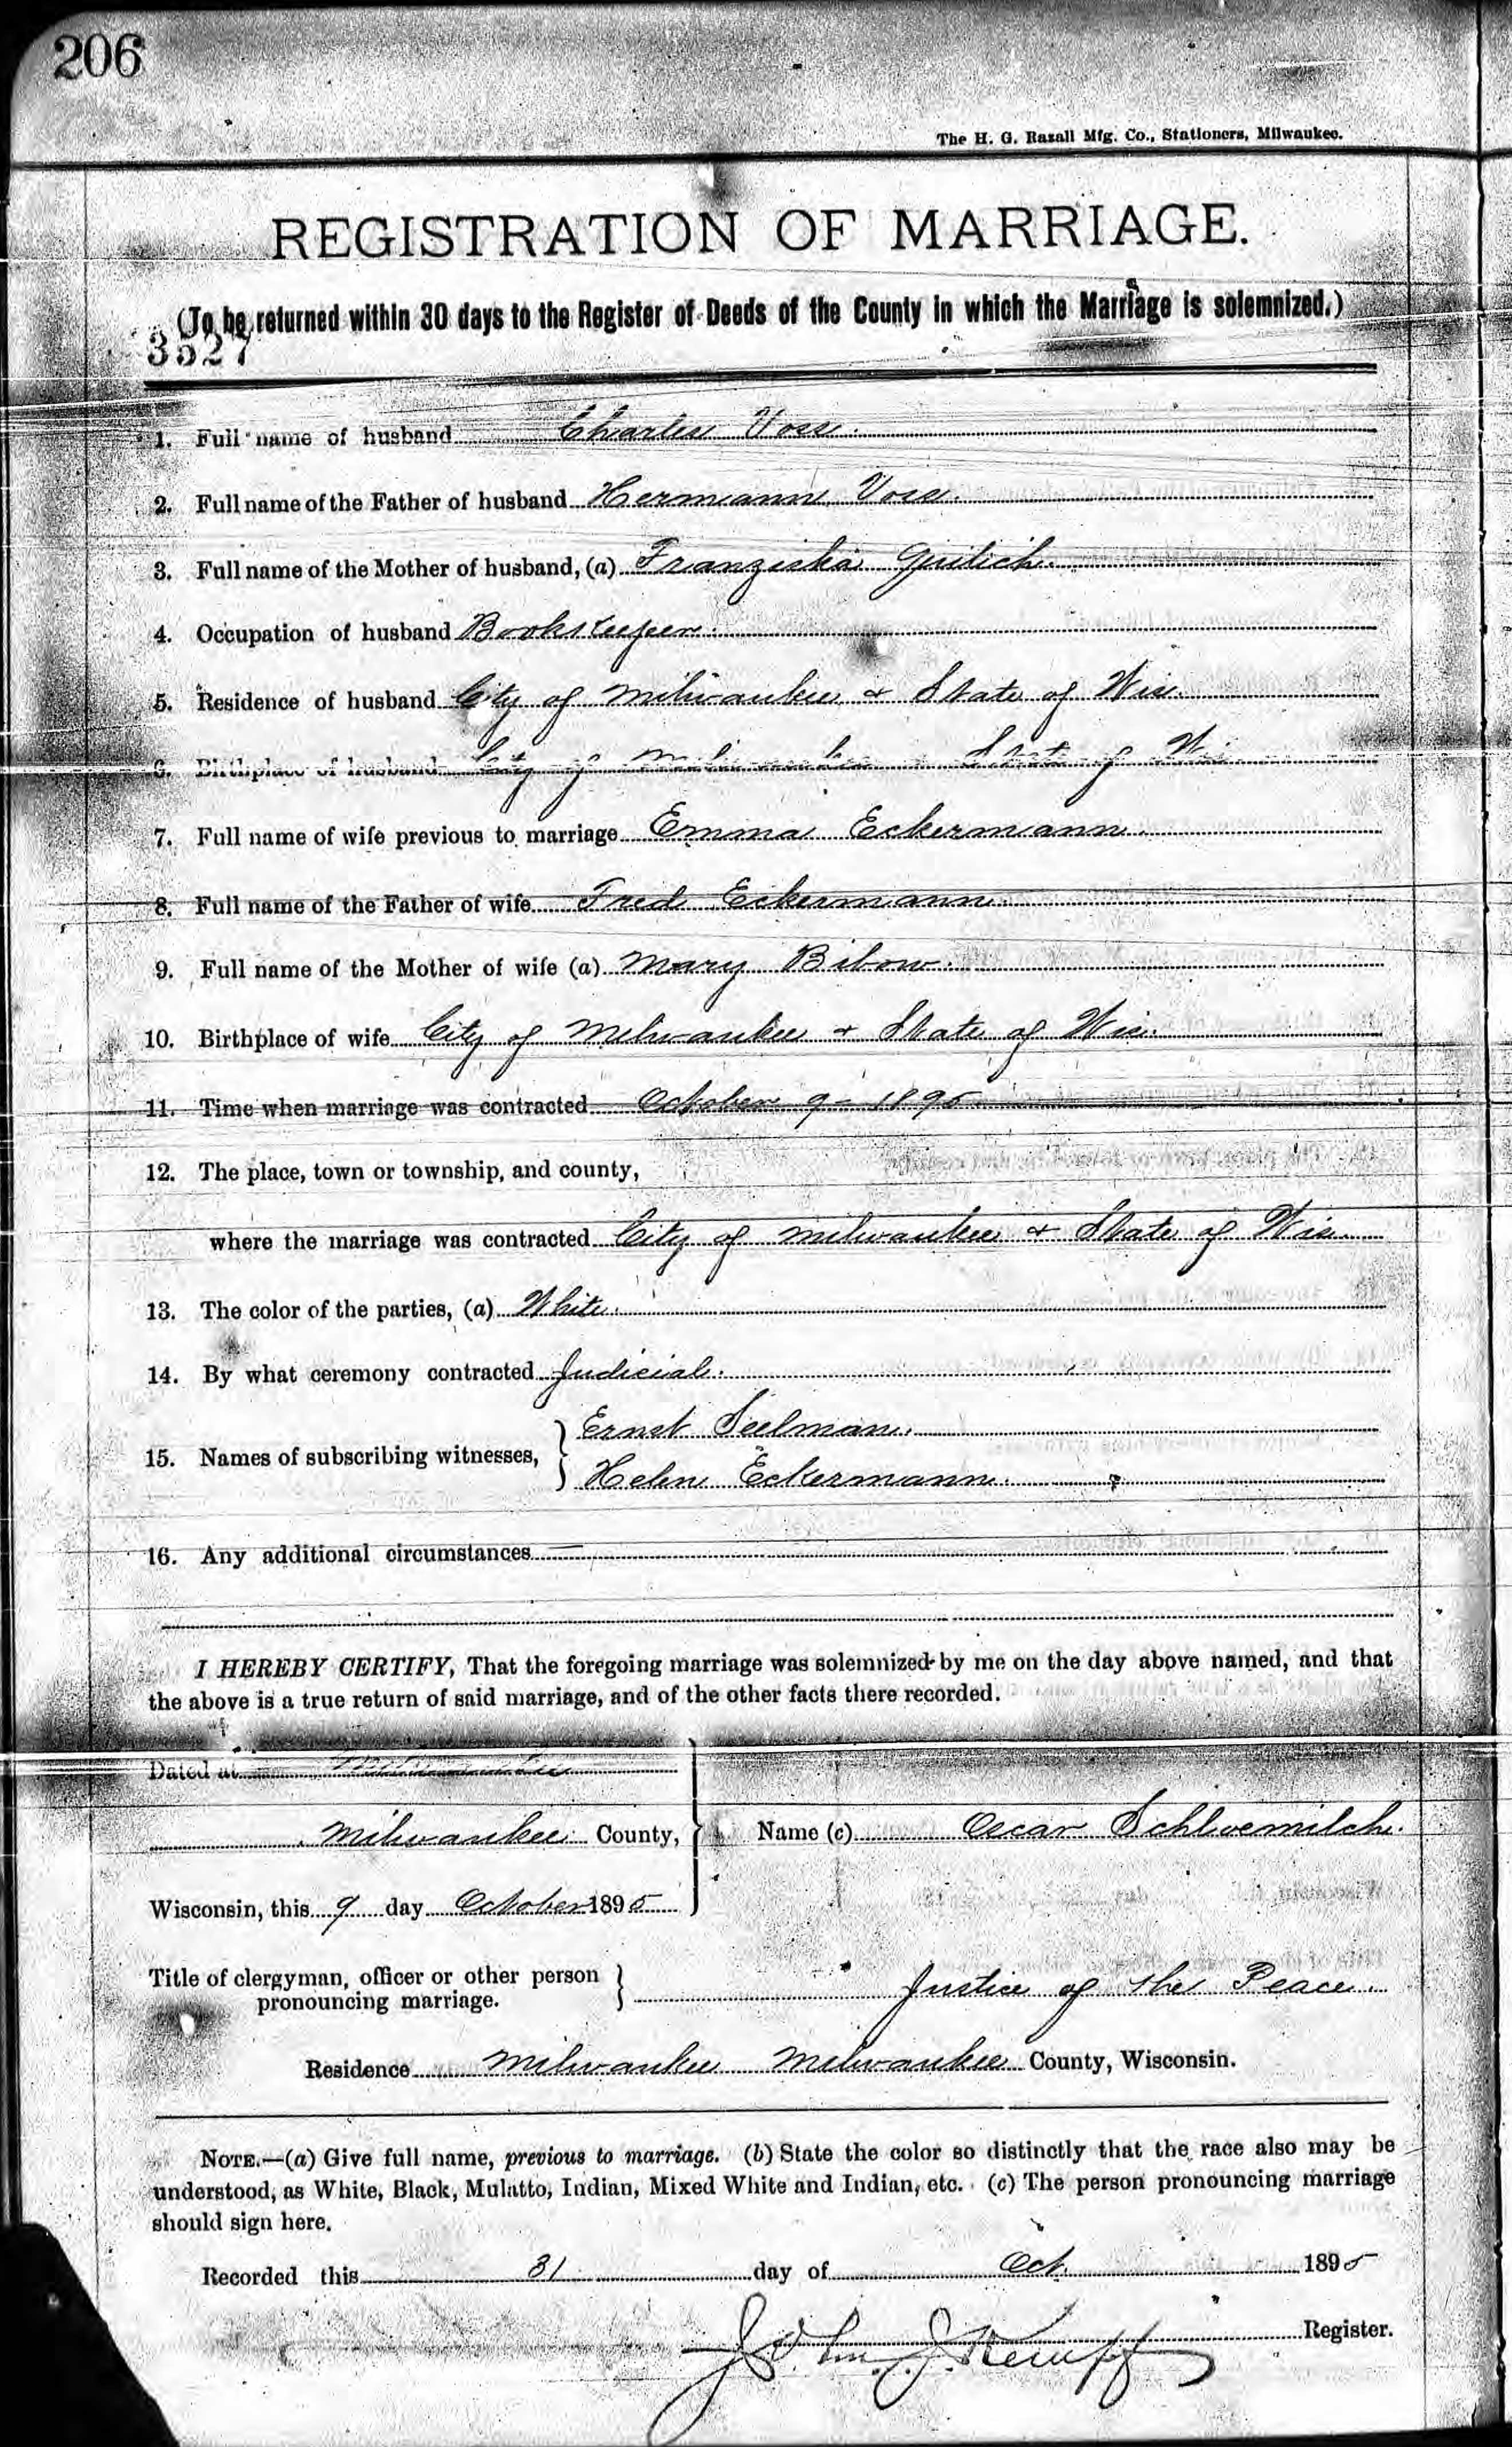 206
The H. G. Razall Mfg. Co., Stationers, Milwaukee.
REGISTRATION OF MARRIAGE.
(To be returned within 30 days to the Register of Deeds of the County in which the Marriage is solemnized.)
3527
1. Full name of husband Charles Voss.
2. Full name of the Father of husband Hermann Voss.
3. Full name of the Mother of husband, (a) Franziska
4. Occupation of husband Bookkeeper.
5. Residence of husband City of Milwaukee & State of Wis.
6. Birthplace of husband City of Milwaukee & State of Wis.
7. Full name of wife previous to marriage Emma Eckermann.
8. Full name of the Father of wife Fred Eckermann.
9. Full name of the Mother of wife (a) Mary Bibow.
10. Birthplace of wife City of Milwaukee & State of Wis.
11. Time when marriage was contracted October 9 - 1895.
12. The place, town or township, and county,
where the marriage was contracted City of Milwaukee & State of Wis.
13. The color of the parties, (a) White.
14. By what ceremony contracted Judicial.
15. Names of subscribing witnesses, } Ernst Seelman.
Helen Eckermann.
16. Any additional circumstances
I HEREBY CERTIFY, That the foregoing marriage was solemnized by me on the day above named, and that
the above is a true return of said marriage, and of the other facts there recorded.
Dated at Milwaukee
Milwaukee County, } Name (c) Oscar Schloemilch.
Wisconsin, this 9 day October 1895
Title of clergyman, officer or other person } Justice of the Peace.
pronouncing marriage.
Residence Milwaukee Milwaukee County, Wisconsin.
NOTE.—(a) Give full name, previous to marriage. (b) State the color so distinctly that the race also may be
understood, as White, Black, Mulatto, Indian, Mixed White and Indian, etc. (c) The person pronouncing marriage
should sign here.
Recorded this 31 day of Oct. 1895
John J. Kempf Register.